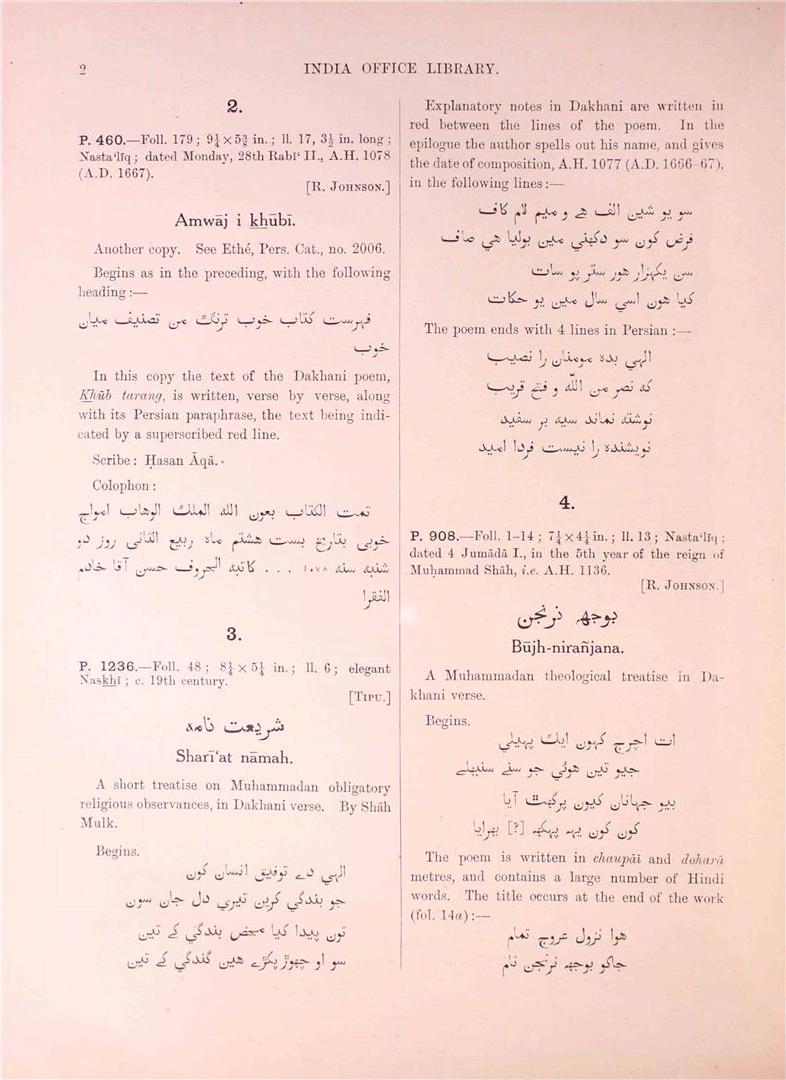 2
INDIA OFFICE LIBRARY.
2.
P. 460.—Foll. 179; 9¼ × 5⅜ in.; ll. 17, 3½ in. long;
Nasta‘līq; dated Monday, 28th Rabī‘ II., A.H. 1078
(A.D. 1667).
[R. Johnson.]
Amwāj i khūbī.
Another copy. See Ethé, Pers. Cat., no. 2006.
Begins as in the preceding, with the following
heading:—
فهرست كتاب خوب ترنگ من تصنيف ميان
خوب
In this copy the text of the Dakhani poem,
Khūb tarang, is written, verse by verse, along
with its Persian paraphrase, the text being indi-
cated by a superscribed red line.
Scribe: Ḥasan Āqā.
Colophon:
تمت الكتاب بعون الله الملك الوهاب امواج
خوبي بتاريخ بست هشتم ماه ربيع الثاني روز دو
شنبه سنه ١٠٧٨ . . . كاتبه الحروف حسن آقا خادم
الفقرا
3.
P. 1236.—Foll. 48; 8¼ × 5¼ in.; ll. 6; elegant
Naskhī; c. 19th century.
[Tipu.]
شريعت نامه
Sharī‘at nāmah.
A short treatise on Muhammadan obligatory
religious observances, in Dakhani verse. By Shāh
Mulk.
Begins.
الهي دے توفيق انسان كون
جو بندگي كرين تيري دل جان سون
تون پيدا كيا محض بندگي كے تين
سو او چهوڙ پكڙے هين گندگي كے تين
Explanatory notes in Dakhani are written in
red between the lines of the poem. In the
epilogue the author spells out his name, and gives
the date of composition, A.H. 1077 (A.D. 1666–67),
in the following lines:—
سو يو شين الف هے و ميم لام كاف
فرض كون سو دكهني مين بوليا هي صاف
سن يكهزار هور ستر پو سات
كيا هون اسي سال مين يو حكات
The poem ends with 4 lines in Persian:—
الهي بده مومنان را نصيب
كه نصر من الله و فتح قريب
نوشته نماند سيه بر سفيد
نويشنده را نيست فردا اميد
4.
P. 908.—Foll. 1–14; 7¼ × 4¼ in.; ll. 13; Nasta‘līq;
dated 4 Jumādā I., in the 5th year of the reign of
Muḥammad Shāh, i.e. A.H. 1136.
[R. Johnson.]
بوجهه نرنجن
Būjh-nirañjana.
A Muhammadan theological treatise in Da-
khani verse.
Begins.
ات اچرج كهون ايك پهيلي
جيو تين هوئي جو سنے سنبهلے
بيو جهانان كيون پرگهٿ آيا
كون كون يهه پهكهه [?] بهرايا
The poem is written in chaupāī and doharā
metres, and contains a large number of Hindi
words. The title occurs at the end of the work
(fol. 14a):—
هوا نزول عروج تمام
جاكو بوجهه نرنجن نام